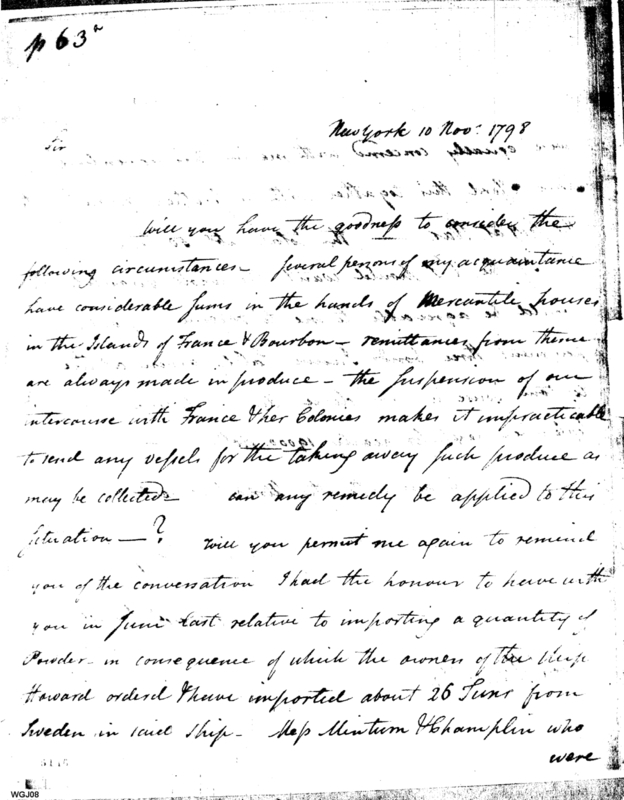 p 63a
New York 10 Novr 1798
Sir
Will you have the goodness to consider the
following circumstances – Several persons of my acquaintance
have considerable Sums in the hands of Mercantile houses
in the Islands of France & Bourbon – remittances from thence
are always made in produce – the Suspension of our
intercourse with France & her Colonies makes it impracticable
to send any vessels for the taking away such produce as
may be collected – can any remedy be applied to this
Situation – ? Will you permit me again to remind
you of the conversation I had the honour to have with
you in June Last relative to importing a quantity of
Powder – in consequence of which the owners of the Ship
Howard orderd & have imported about 26 Tuns from
Sweden in said Ship – Mess Minturn & Champlin who
were
WGJ08